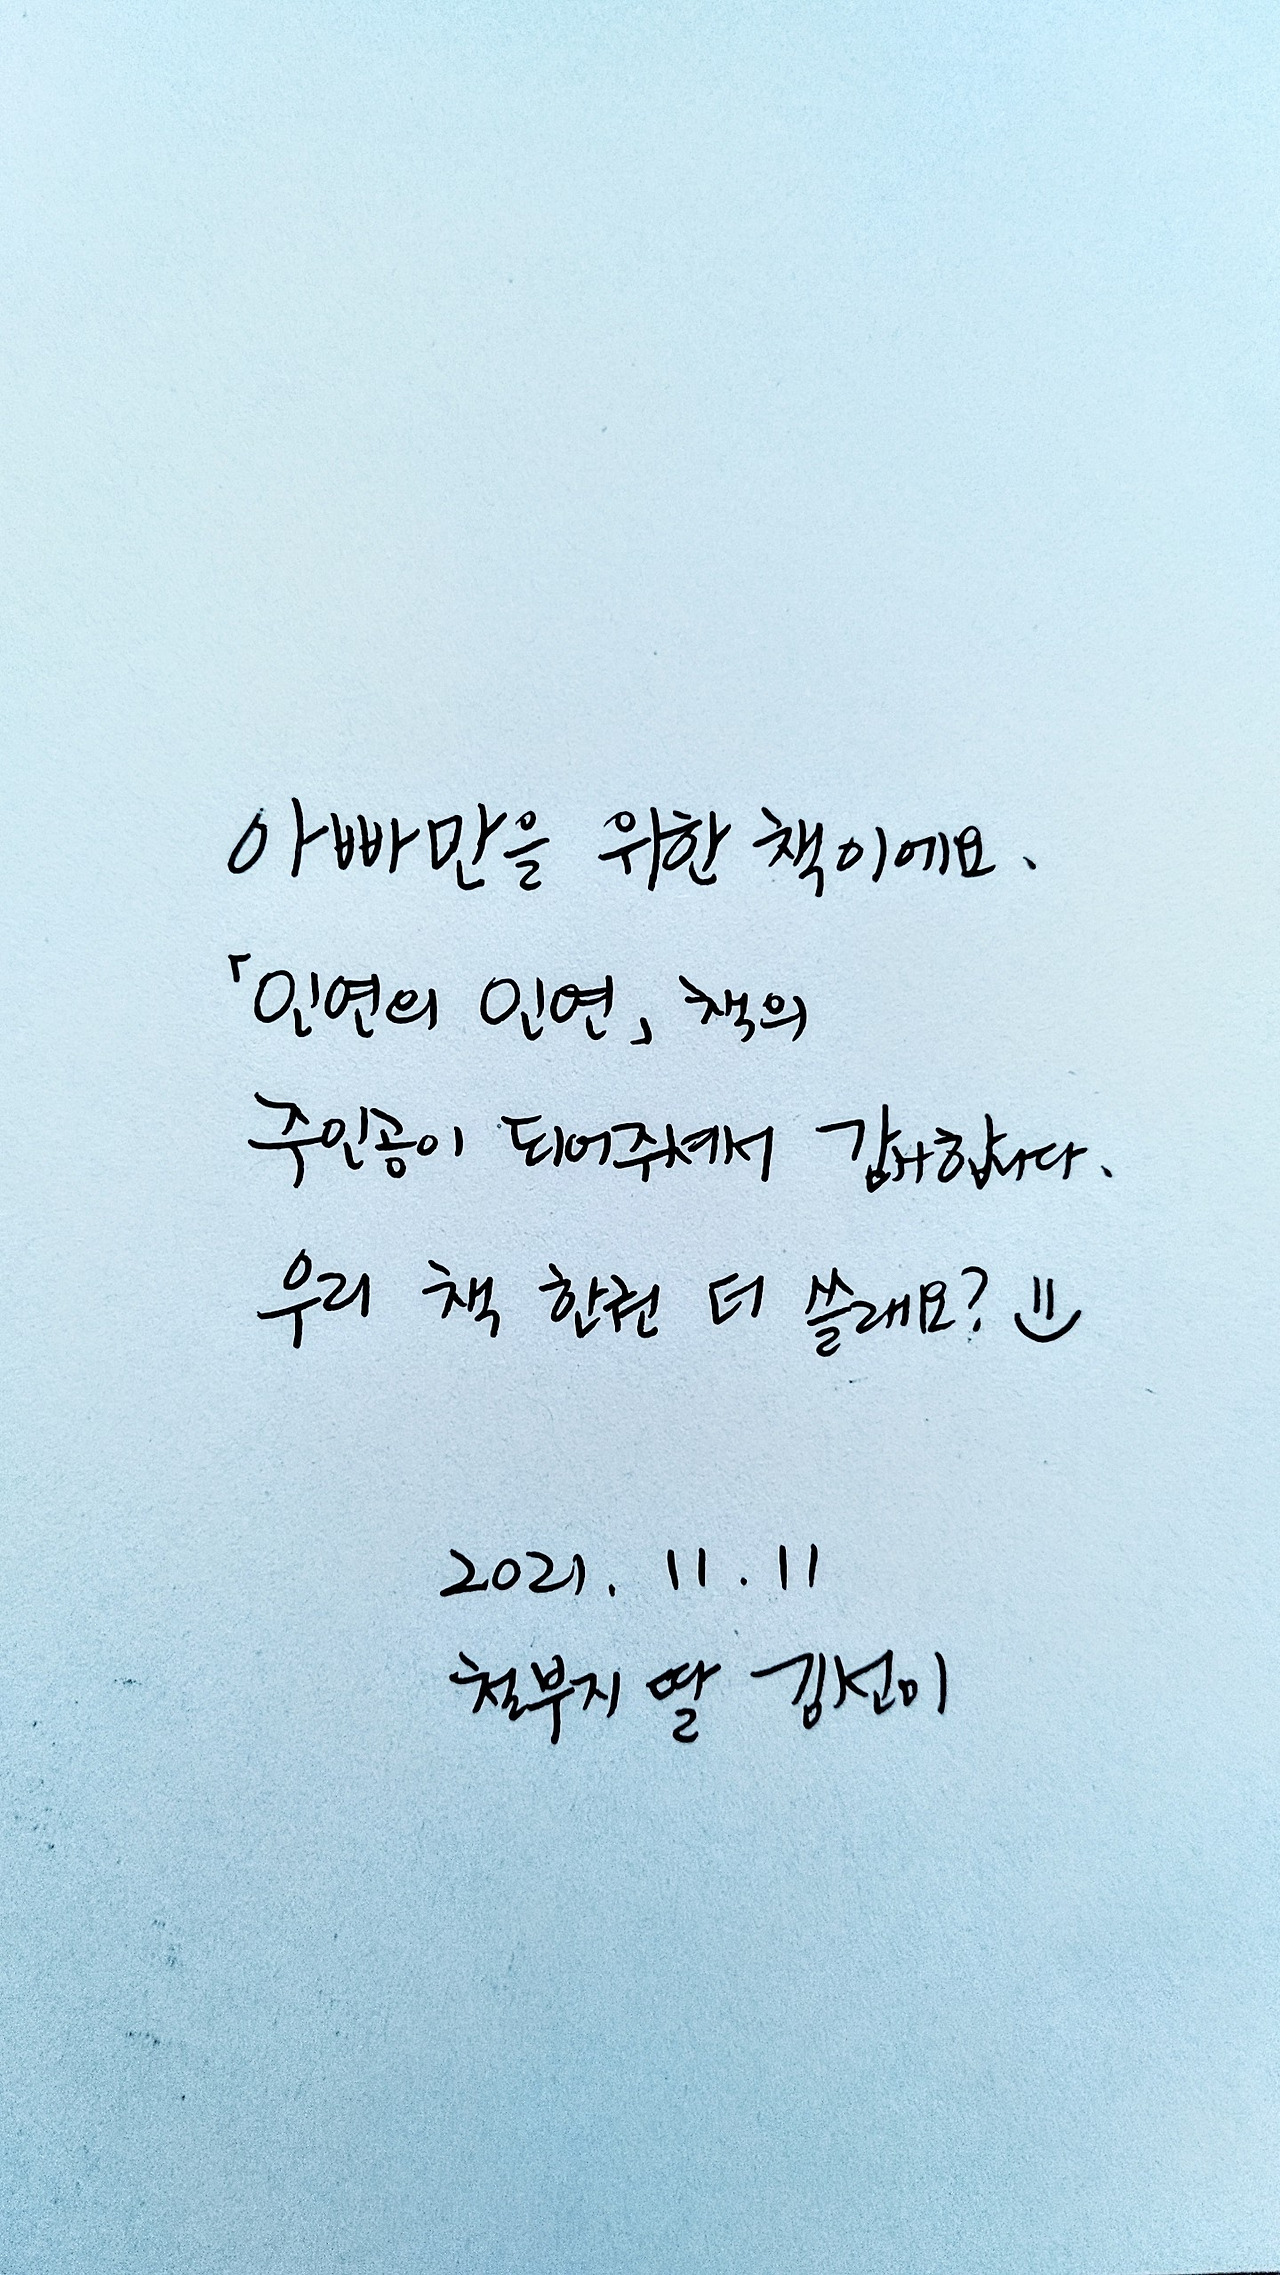 아빠만을 위한 책이에요.
「인연의 인연」 책의
주인공이 되어주셔서 감사합니다.
우리 책 한권 더 쓸래요?
2021. 11. 11
철부지 딸 김선미